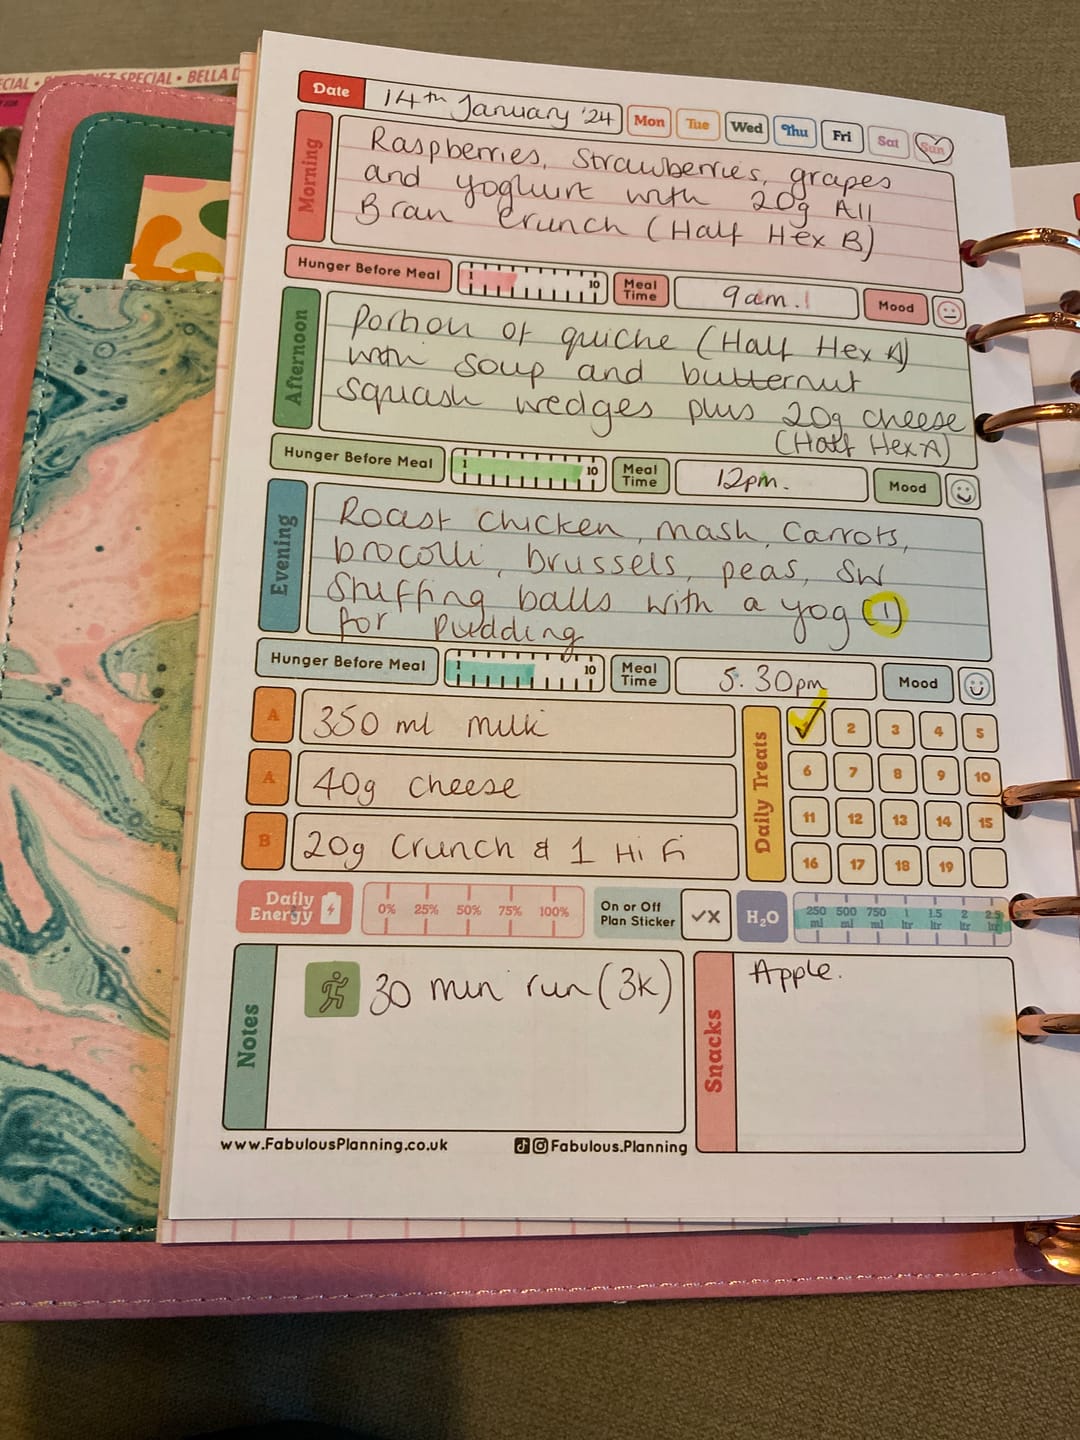 CIAL • BELLA DIET SPECIAL • BELLA D
Date 14th January '24 Mon Tue Wed Thu Fri Sat Sun
Morning
Raspberries, Strawberries, grapes
and yoghurt with 20g All
Bran Crunch (Half Hex B)
Hunger Before Meal 1 10 Meal Time 9am. Mood
Afternoon
Portion of quiche (Half Hex A)
with soup and butternut
squash wedges plus 20g cheese
(Half Hex A)
Hunger Before Meal 1 10 Meal Time 12pm. Mood
Evening
Roast chicken, mash, carrots,
brocolli, brussels, peas, SW
Stuffing balls with a yog (1)
for pudding
Hunger Before Meal 1 10 Meal Time 5.30pm Mood
A 350 ml milk
A 40g cheese
B 20g Crunch & 1 Hi Fi
Daily Treats
2 3 4 5
6 7 8 9 10
11 12 13 14 15
16 17 18 19
Daily Energy 0% 25% 50% 75% 100%
On or Off Plan Sticker ✓X
H₂O 250 ml 500 ml 750 ml 1 ltr 1.5 ltr 2 ltr 2.5 ltr
Notes
30 min run (3k)
Snacks
Apple.
www.FabulousPlanning.co.uk Fabulous.Planning